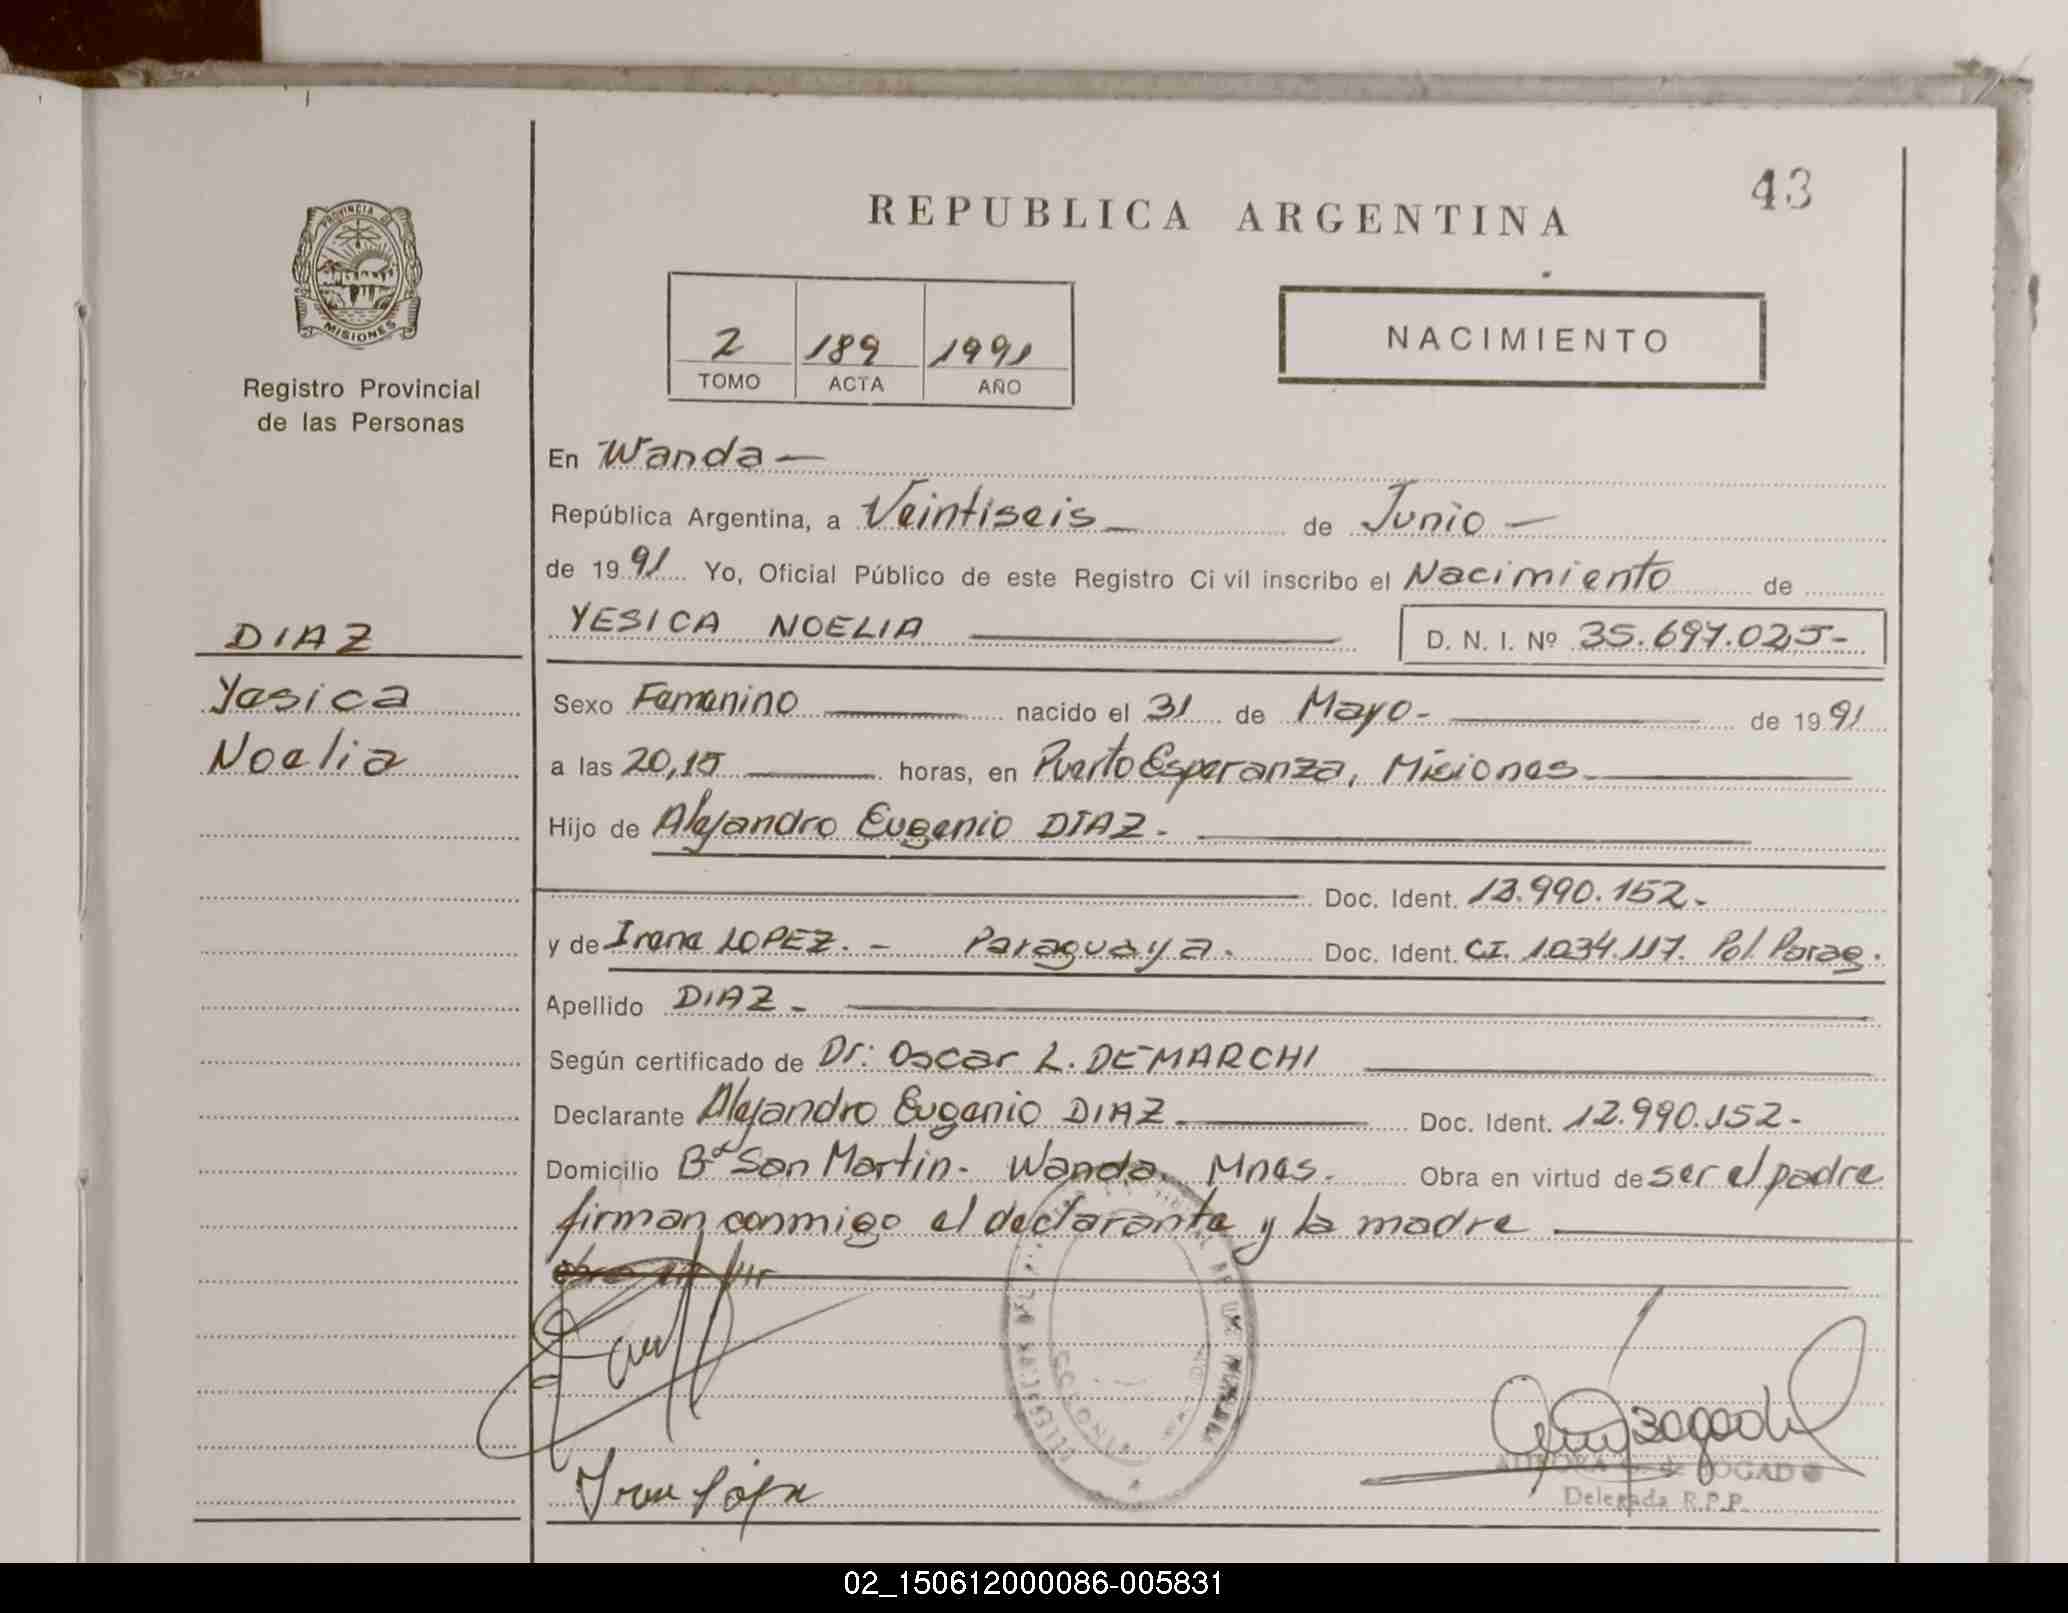 43
REPUBLICA ARGENTINA
PROVINCIA DE
MISIONES
Registro Provincial
de las Personas
2 189 1991
TOMO ACTA AÑO
NACIMIENTO
En Wanda —
República Argentina, a Veintiseis — de Junio —
de 1991 Yo, Oficial Público de este Registro Civil inscribo el Nacimiento de
YESICA NOELIA D. N. I. Nº 35.697.025-
DIAZ
Yesica
Noelia
Sexo Femenino nacido el 31 de Mayo- de 1991
a las 20,15 horas, en Puerto Esperanza, Misiones
Hijo de Alejandro Eugenio DIAZ.
Doc. Ident. 12.990.152-
y de Irene LOPEZ. - Paraguaya. Doc. Ident. CI. 1.034.117. Pol. Parag.
Apellido DIAZ -
Según certificado de Dr: Oscar L. DE MARCHI
Declarante Alejandro Eugenio DIAZ Doc. Ident. 12.990.152-
Domicilio Bº San Martin- Wanda, Mnes. Obra en virtud de ser el padre
firman conmigo el declarante y la madre
BOGADO
Delegada R.P.P.
02_150612000086-005831